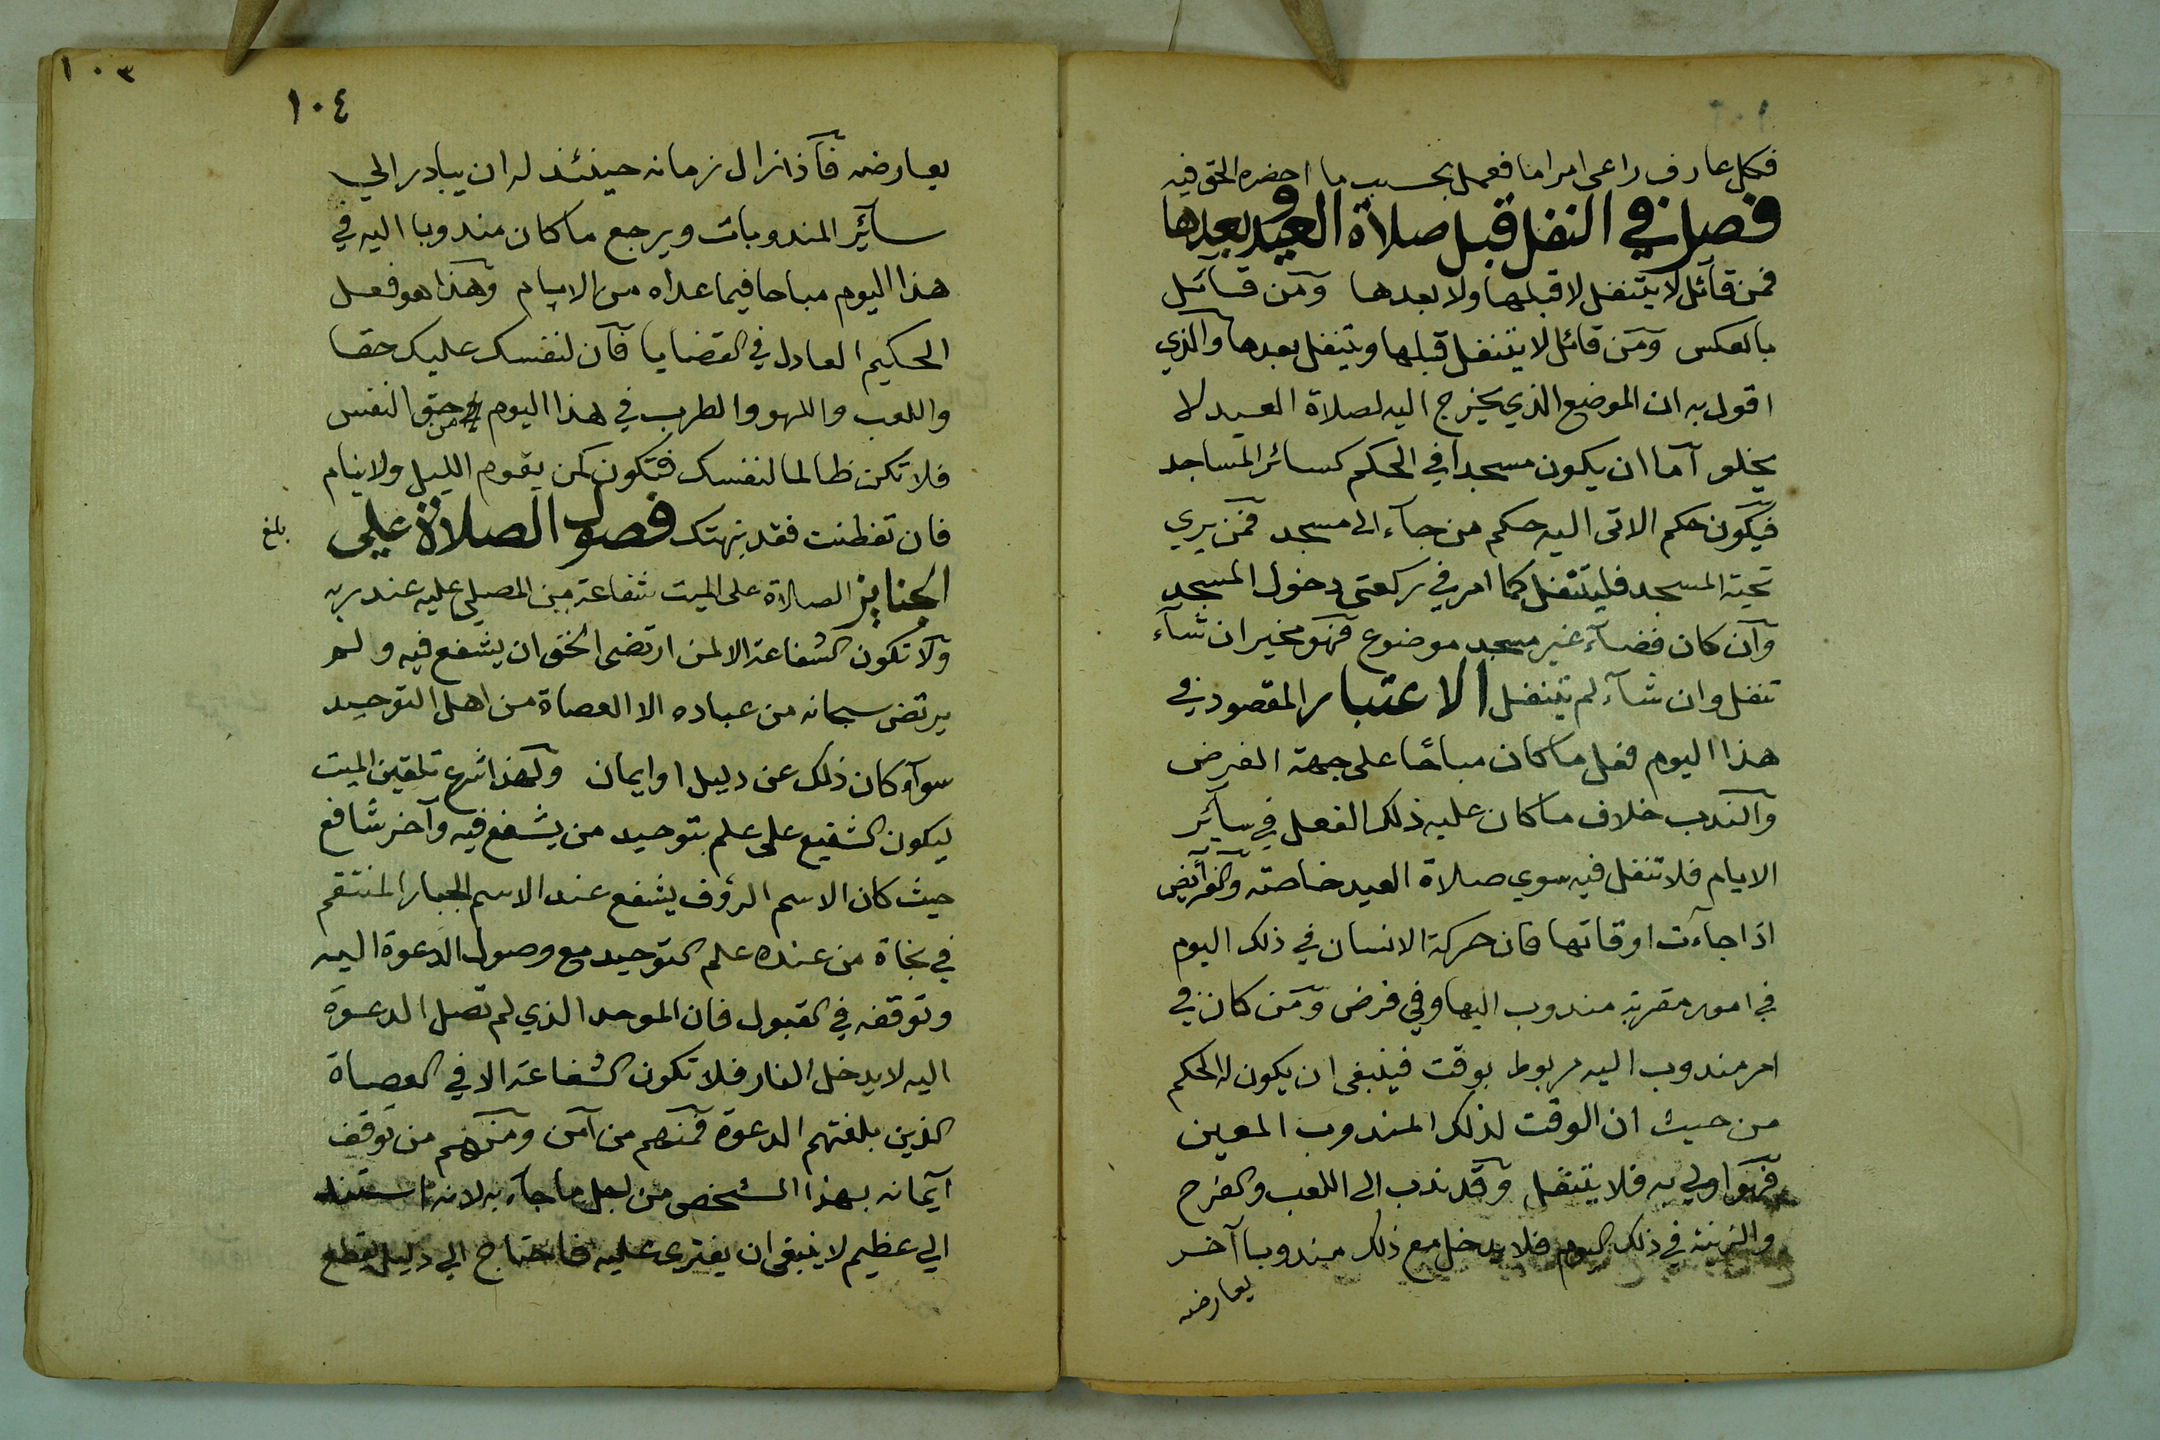 فكل عارف راعى امرا ما فعمل بحسب ما احضره الحق فيه
فصل في النفل قبل صلاة العيد وبعدها
فمن قائل لا يتنفل لا قبلها ولا بعدها ومن قائل
بالعكس ومن قائل لا يتنفل قبلها ويتنفل بعدها والذي
اقول به ان الموضع الذي يخرج اليه لصلاة العيد لا
يخلو اما ان يكون مسجدا في الحكم كسائر المساجد
فيكون حكم الاتى اليه حكم من جآء الى مسجد فمن يري
تحية المسجد فليتنفل كما امر في ركعتى دخول المسجد
وان كان فضآء غير مسجد موضوع فهو مخير ان شآء
تنفل وان شآء لم يتنفل الاعتبار المقصود في
هذا اليوم فعل ما كان مباحا على جهة الفرض
والندب خلاف ما كان عليه ذلك الفعل في سائر
الايام فلا تنفل فيه سوي صلاة العيد خاصة والفرائض
اذا جآءت اوقاتها فان حركة الانسان في ذلك اليوم
في امور مقربة مندوب اليها وفي فرض ومن كان في
امر مندوب اليه مربوط بوقت فينبغى ان يكون له الحكم
من حيث ان الوقت لذلك المندوب المعين
فهو اولي به فلا يتنفل وقد ندب الى اللعب والفرح
والزينة في ذلك اليوم فلا يدخل مع ذلك مندوبا آخر
يعارضه
١٠٣
١٠٤
يعارضه فاذا زال زمانه حينئذ له ان يبادر الي
سآئر المندوبات ويرجع ما كان مندوبا اليه في
هذا اليوم مباحا فيما عداه من الايام وهذا هو فعل
الحكيم العادل في القضايا فان لنفسك عليك حقا
واللعب واللهو والطرب في هذا اليوم من حق النفس
فلا تكن ظالما لنفسك فتكون كمن يقوم الليل ولا ينام
فان تفطنت فقد نبهتك فصول الصلاة على
بلغ
الجنايز الصلاة على الميت شفاعة من المصلي عليه عند ربه
ولا تكون الشفاعة الا لمن ارتضى الحق ان يشفع فيه ولم
يرتض سبحانه من عباده الا العصاة من اهل التوحيد
سوآء كان ذلك عن دليل او ايمان ولهذا شرع تلقين الميت
ليكون الشفيع على علم بتوحيد من يشفع فيه وآخر شافع
حيث كان الاسم الرؤف يشفع عند الاسم الجبار المنتقم
في نجاة من عنده علم التوحيد مع وصول الدعوة اليه
وتوقفه في القبول فان الموحد الذي لم تصل الدعوة
اليه لا يدخل النار فلا تكون الشفاعة الا في العصاة
الذين بلغتهم الدعوة فمنهم من آمن ومنهم من توقف
ايمانه بهذا الشخص من اجل ما جآء به لانه استند
الي عظيم لا ينبغى ان يفترى عليه فاحتاج الي دليل يقطع